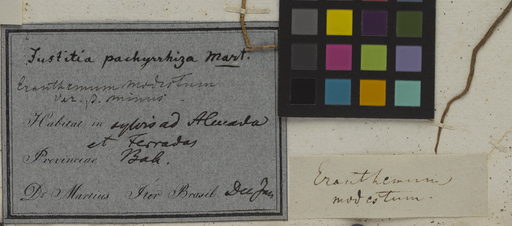 Justitia pachyrrhiza Mart.
Eranthemum modestum
Var. β. minus
Habitat in sylvis ad Almada
et Ferradas
Provinciae Bah.
Dr Martius Iter Brasil. Dec
Eranthemum
modestum.